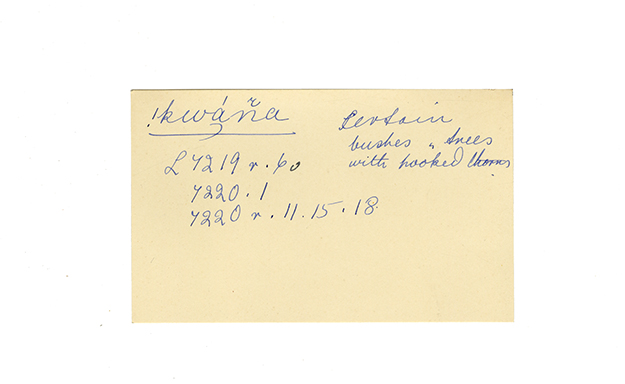 !kwá̰r̆na
Certain
bushes " trees
with hooked thorns
L 7219 r. 60
7220. 1
7220 r. 11. 15. 18.